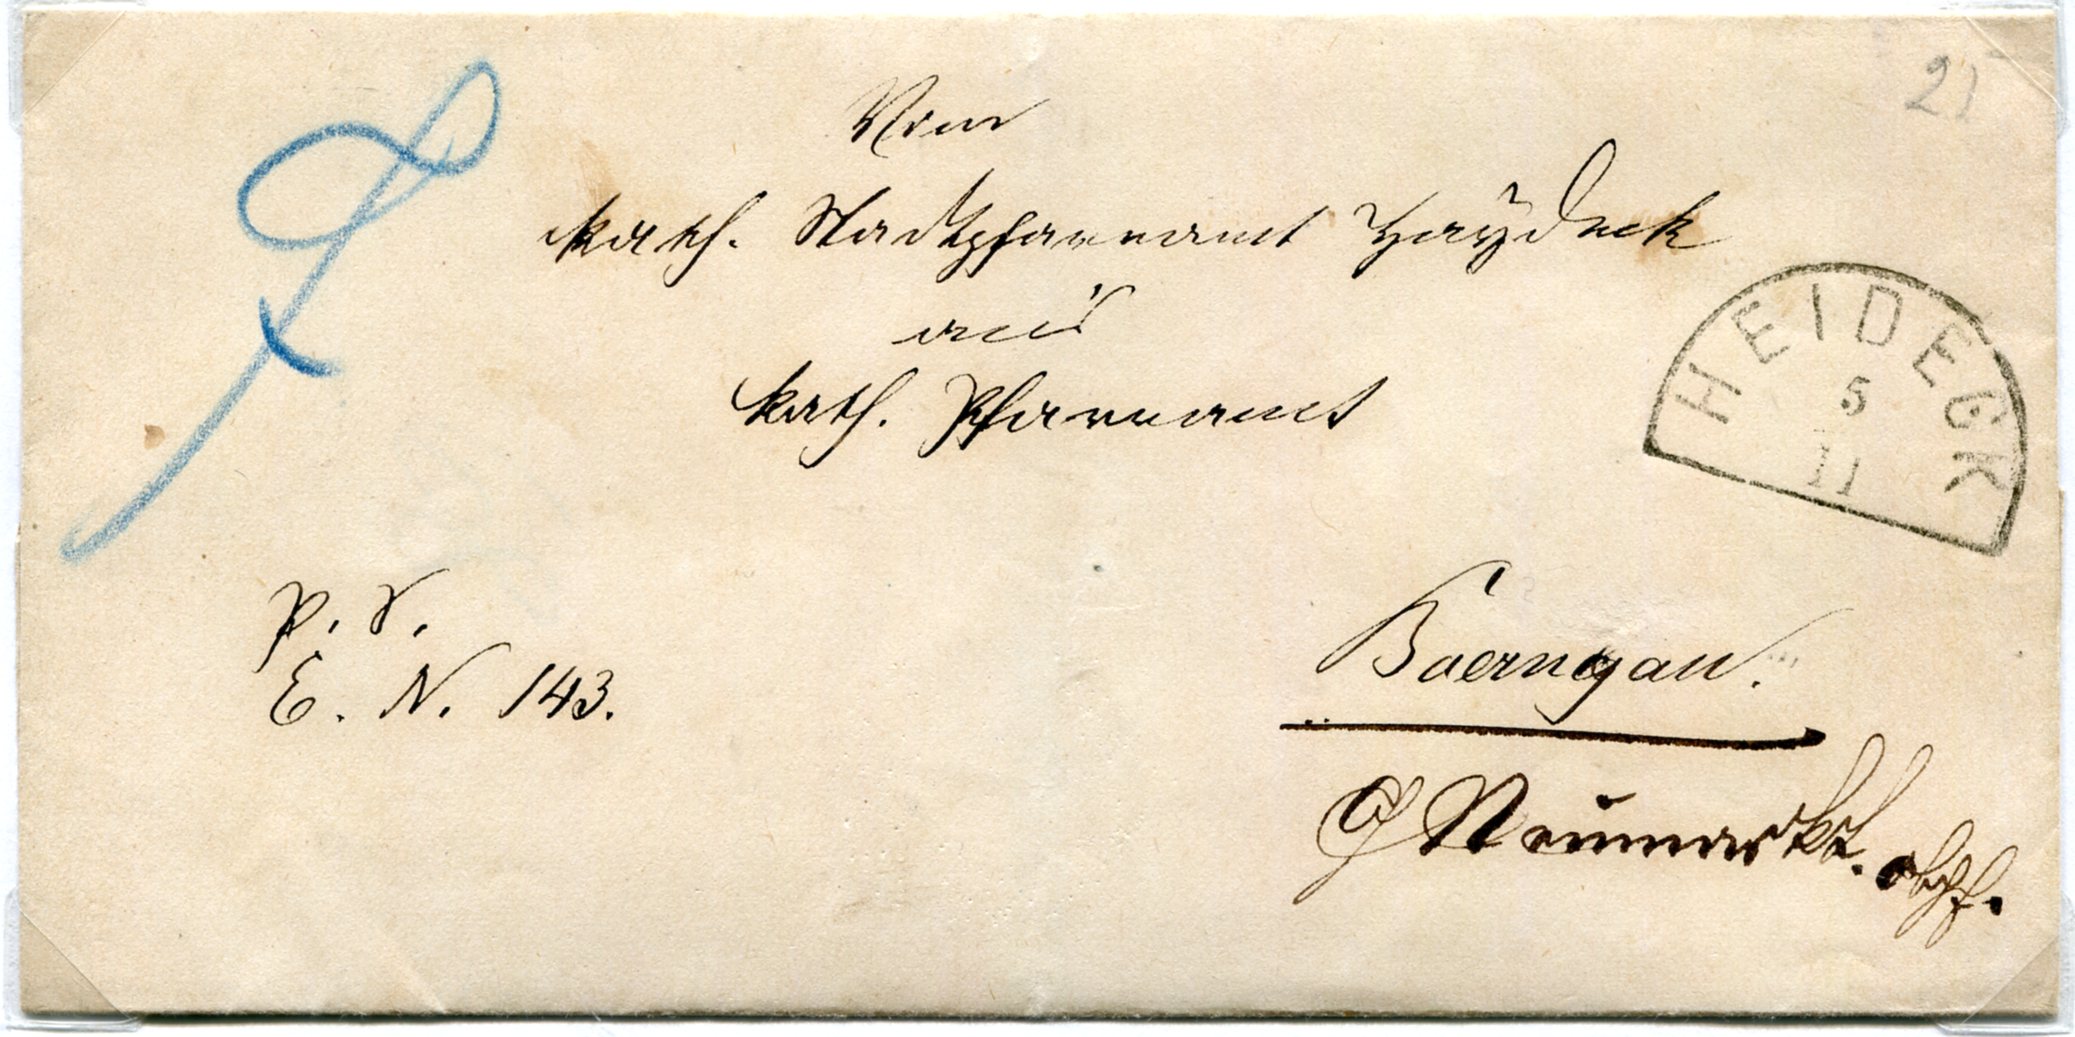 21
Vom
kath. Stadtpfarramt Haydeck
ans
kath. Pfarramt
HEIDECK
5
11
P. S.
E. N. 143.
Baerngau.
Neumarkt. obpf.